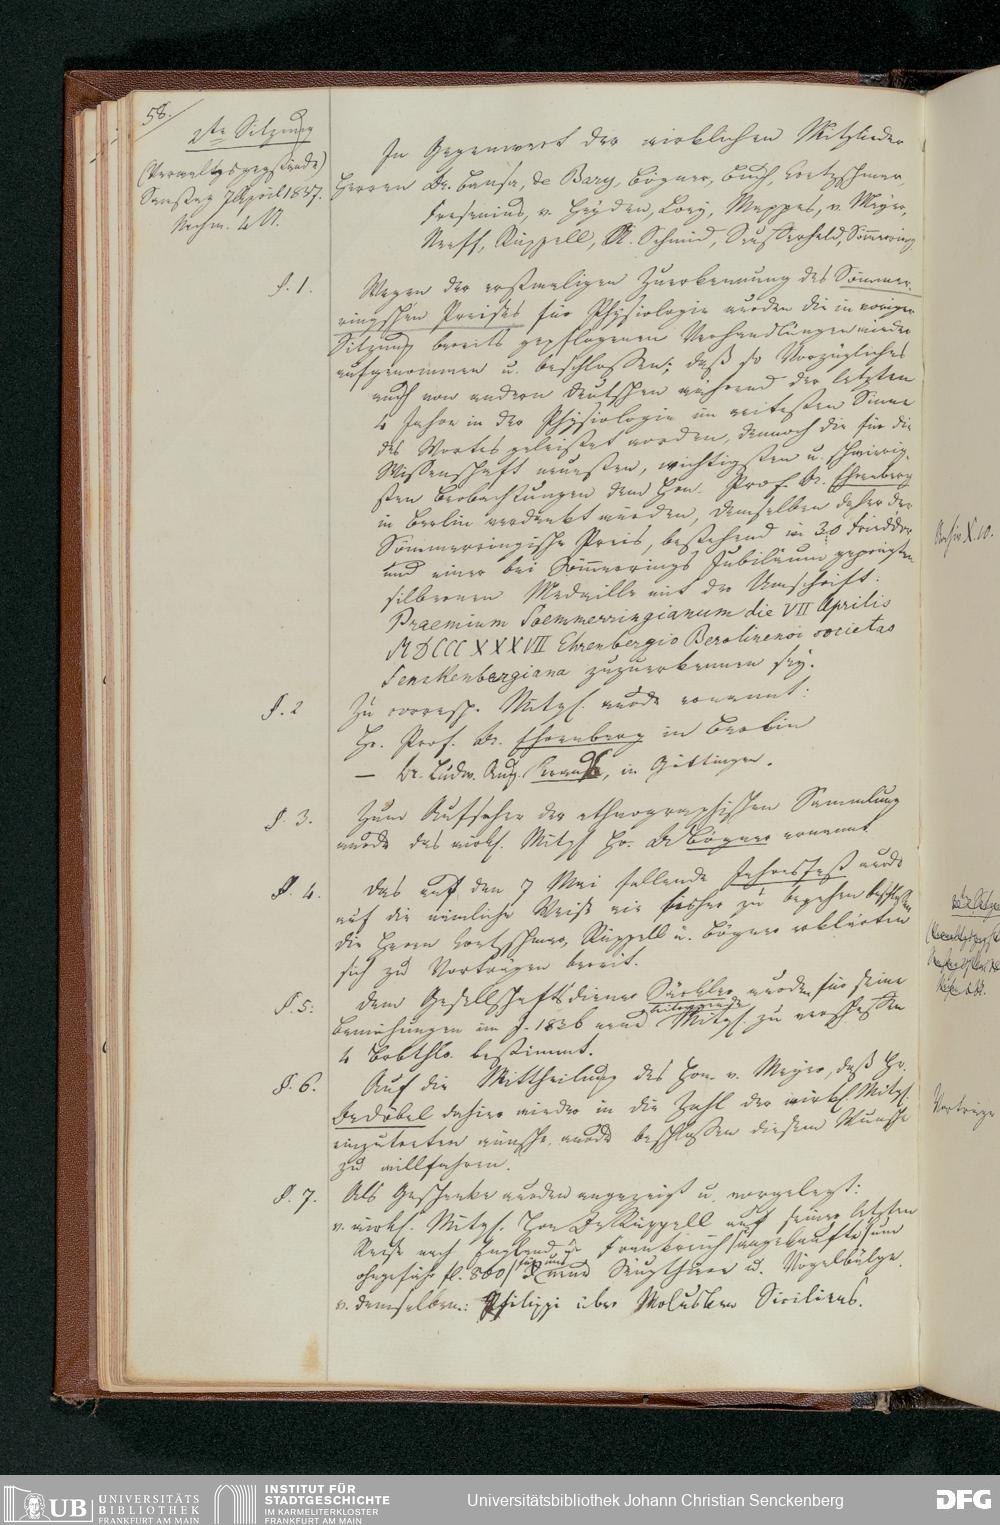 58.
2te Sitzung
(Verwaltgsgegstände)
Samstag 7 April 1837.
Nachm. 4 U.
In Gegenwart der wirklichen Mitglieder
Herren Dr. Bansa, de Bary, Bögner, Buch, Cretzschmar,
Fresenius, v. Heyden, Mappes, v. Meyer,
Neeff, Rüppell, Schmid, Sömmerring
§. 1.
Wegen der erstmaligen Zuerkennung des Sömmer-
ringschen Preises für Physiologie wurden die in voriger
Sitzung bereits gepflogenen Verhandlungen wieder
aufgenommen u. beschlossen: daß so Vorzügliches
auch von andern Deutschen während der letzten
4 Jahre in der Physiologie im weitesten Sinne
des Wortes geleistet worden, dennoch die für die
Wissenschaft neuesten, wichtigsten u. schwierig-
sten Beobachtungen dem Hrn. Prof. Dr. Ehrenberg
in Berlin verdankt würden, demselben daher der
Sömmerringische Preis, bestehend in 30 Frieddor
und einer bei Sömmerrings Jubiläum geprägten
silbernen Medaille mit der Umschrift:
Praemium Soemmerringianum die VII Aprilis
MDCCCXXXVII Ehrenbergio Berolinensi societas
Senckenbergiana zuzuerkennen sey.
§. 2
Zu corresp. Mitgl. wurde ernannt:
Hr. Prof. Dr. Ehrenberg in Berlin
— Dr. Ludw. Aug. in Göttingen.
§. 3.
Zum Aufseher der ethnographischen Sammlung
wurde das wirkl. Mitgl. Hr. Dr Bögner ernannt
§. 4.
Das auf den 7 Mai fallende Jahresfest wurde
auf die nämliche Weise wie bisher zu begehen beschlossen
die Herrn Cretzschmar, Rüppell u. Bögner erklärten
sich zu Vorträgen bereit.
§. 5.
Dem Gesellschaftsdiener wurden für seine
Bemühungen im J. 1836 neue beitragende Mitgl. zu verschaffen
4 Brbthlr. bestimmt.
§. 6.
Auf die Mittheilung des Hrn. v. Meyer, daß Hr.
Dr Döbel dahier wieder in die Zahl der wirkl. Mitgl.
einzutreten wünsche, wurde beschlossen diesem Wunsche
zu willfahren.
§. 7.
Als Geschenke wurden angezeigt u. vorgelegt:
v. wirkl. Mitgl. Hrn Dr Rüppell auf seiner letzten
Reise nach England u. Frankreich angekaufte (um
ohngefähr fl. 800) für uns neue Säugthiere u. Vögelbälge.
v. demselben: Philippi über Molusken Siciliens.
Archiv X. 10.
Vorträge
UB UNIVERSITÄTS
BIBLIOTHEK
FRANKFURT AM MAIN
INSTITUT FÜR
STADTGESCHICHTE
IM KARMELITERKLOSTER
FRANKFURT AM MAIN
Universitätsbibliothek Johann Christian Senckenberg
DFG